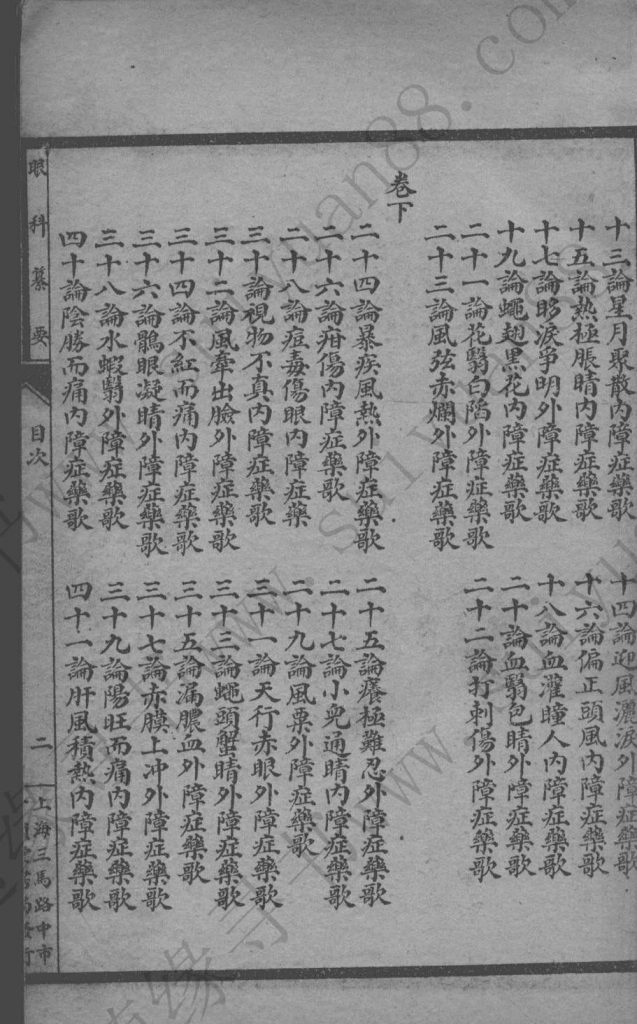 十三論星月聚散內障症藥歌
十四論迎風灑淚外障症藥歌
十五論熱極脹睛內障症藥歌
十六論偏正頭風內障症藥歌
十七論眵淚爭明外障症藥歌
十八論血灌瞳人內障症藥歌
十九論蠅翅黑花內障症藥歌
二十論血翳包睛外障症藥歌
二十一論花翳白陷外障症藥歌
二十二論打刺傷外障症藥歌
二十三論風弦赤爛外障症藥歌
卷下
二十四論暴疾風熱外障症藥歌
二十五論癢極難忍外障症藥歌
二十六論疳傷內障症藥歌
二十七論小兒通睛內障症藥歌
二十八論痘毒傷眼內障症藥
二十九論風粟外障症藥歌
三十論視物不真內障症藥歌
三十一論天行赤眼外障症藥歌
三十二論風牽出瞼外障症藥歌
三十三論蠅頭蟹睛外障症藥歌
三十四論不紅而痛內障症藥歌
三十五論漏膿血外障症藥歌
三十六論鶻眼凝睛外障症藥歌
三十七論赤膜上冲外障症藥歌
三十八論水蝦翳外障症藥歌
三十九論陽旺而痛內障症藥歌
四十論陰勝而痛內障症藥歌
四十一論肝風積熱內障症藥歌
眼科纂要
目次
二
上海三馬路中市